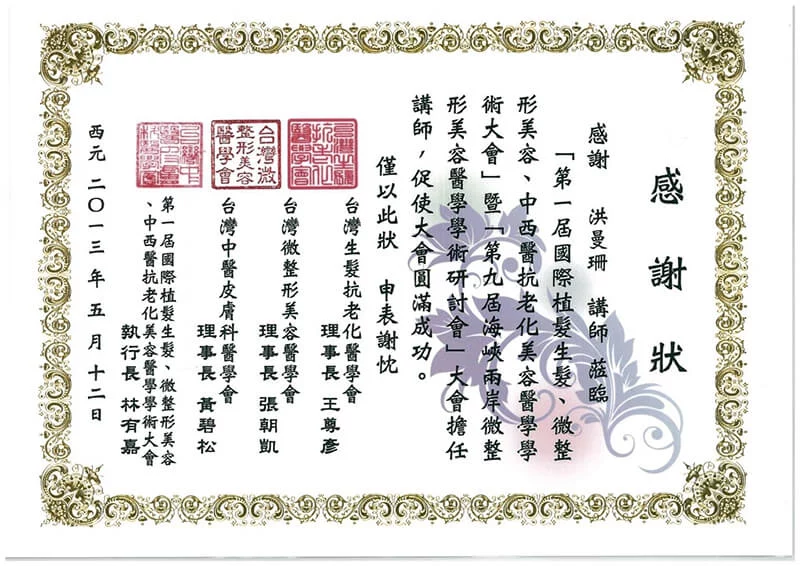 感謝狀
感謝 洪曼珊 講師 蒞臨
「第一屆國際植髮生髮、微整
形美容、中西醫抗老化美容醫學學
術大會」暨「第九屆海峽兩岸微整
形美容醫學學術研討會」大會擔任
講師，促使大會圓滿成功。
僅以此狀 申表謝忱
台灣生髮抗老化醫學會
理事長 王尊彥
台灣微整形美容醫學會
理事長 張朝凱
台灣中醫皮膚科醫學會
理事長 黃碧松
第一屆國際植髮生髮、微整形美容
、中西醫抗老化美容醫學學術大會
執行長 林有嘉
台灣微
整形美容
醫學會
西元 二〇一三 年 五 月 十二 日